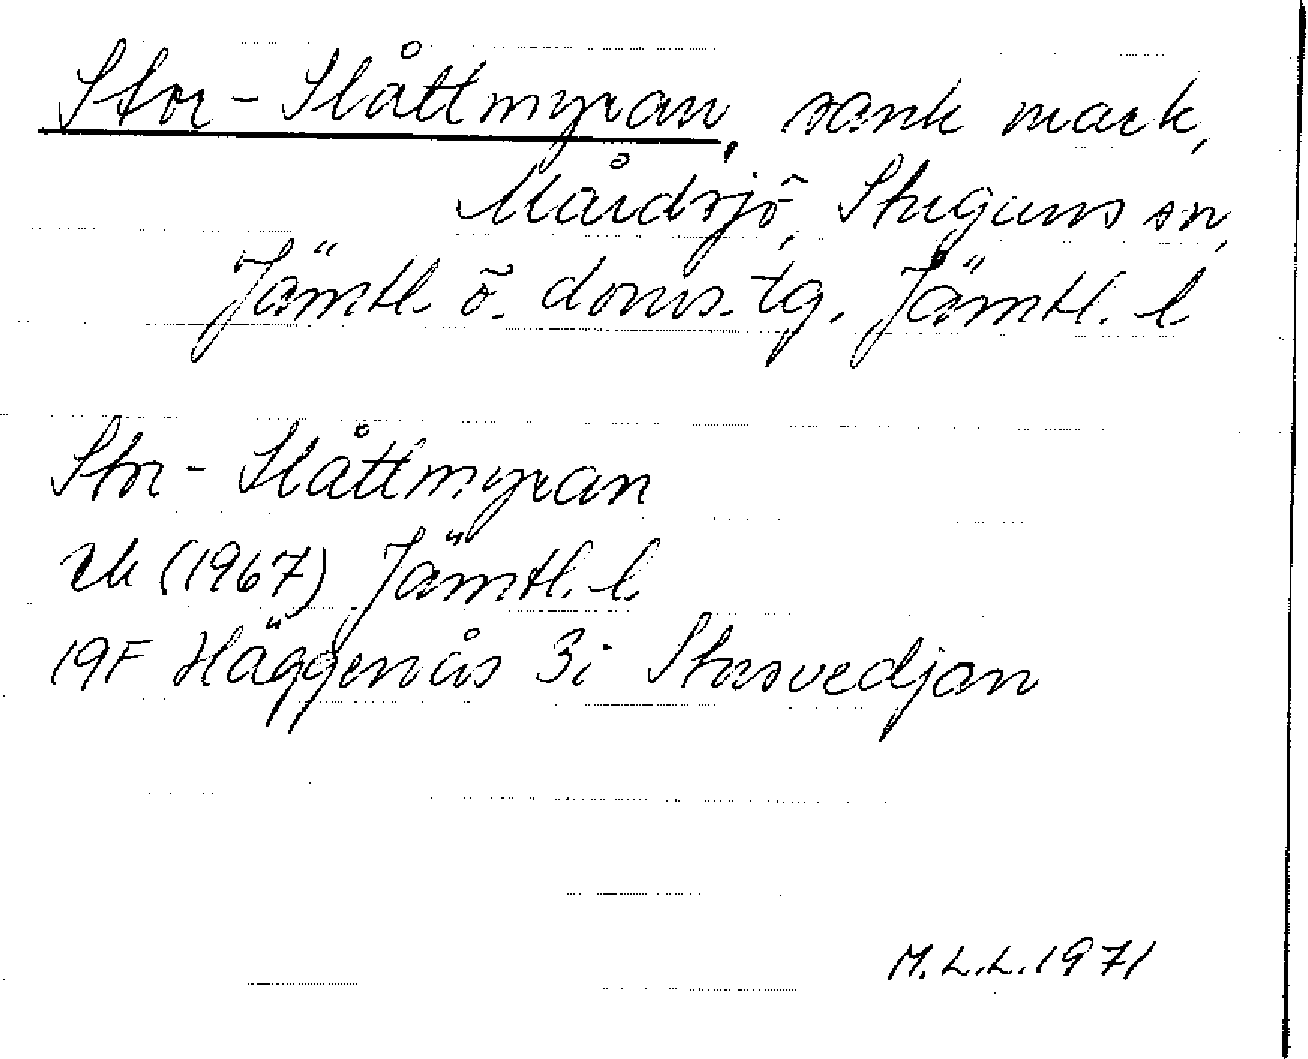 Stor-Slåttmyran, sank mark,
Mårdsjö, Stuguns sn,
Jämtl. ö. doms. tg. Jämtl. l
Stor-Slåttmyran
ek (1967) Jämtl. l.
19F Häggenås 3i Stusvedjan
M.L.L. 1971